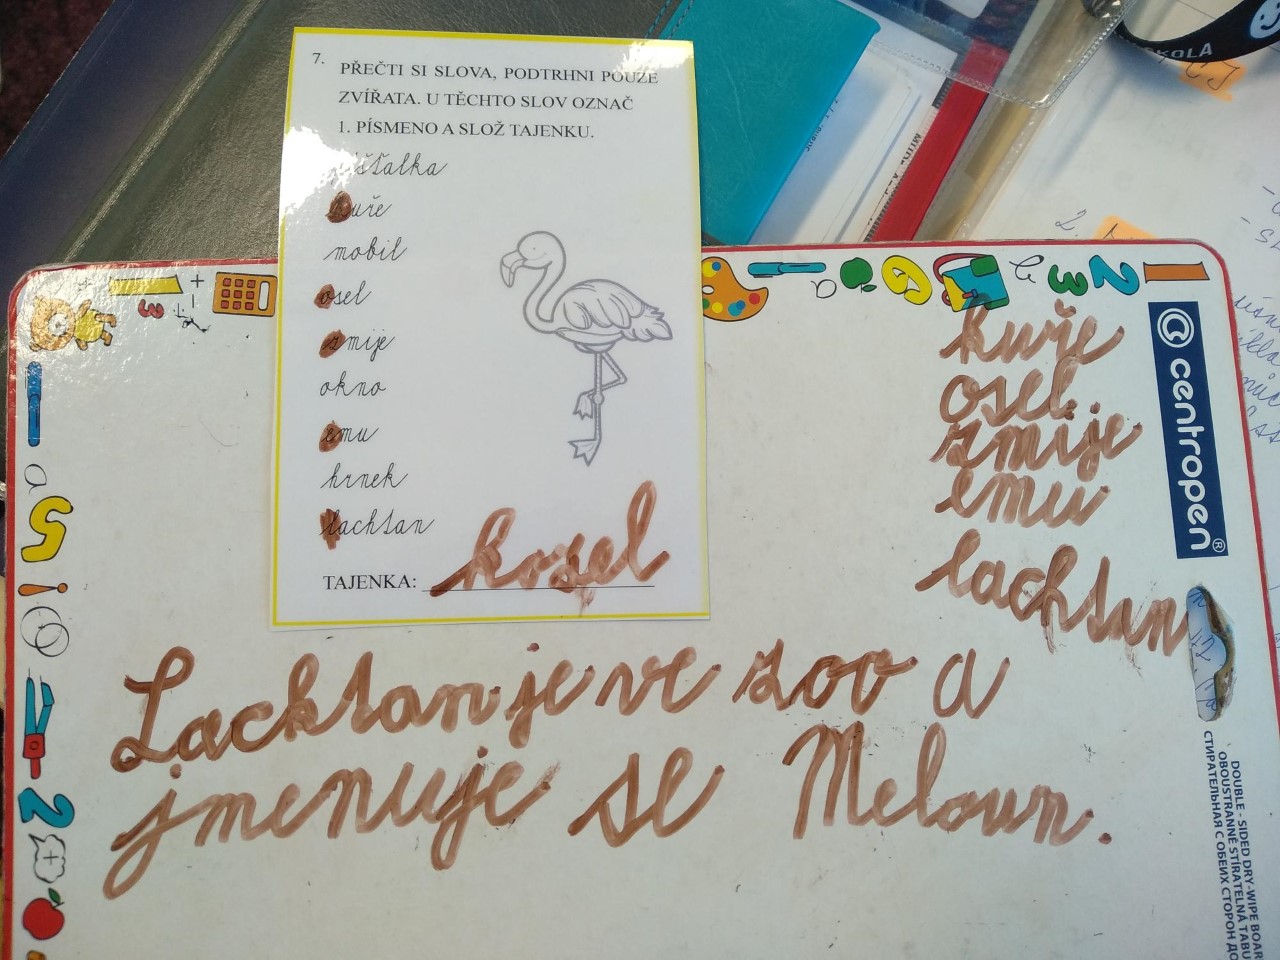 7. PŘEČTI SI SLOVA, PODTRHNI POUZE
ZVÍŘATA. U TĚCHTO SLOV OZNAČ
1. PÍSMENO A SLOŽ TAJENKU.
píšťalka
kuře
mobil
osel
zmije
okno
emu
hrnek
lachtan
TAJENKA: kozel
kuře
osel
zmije
emu
lachtan
Lachtan je ve zoo a
jmenuje se Meloun.
centropen®
DOUBLE - SIDED DRY-WIPE BOAR
OBOUSTRANNĚ STÍRATELNÁ TABU
СТИРАТЕЛЬНАЯ С ОБЕИХ СТОРОН ДО
KOLA
2.